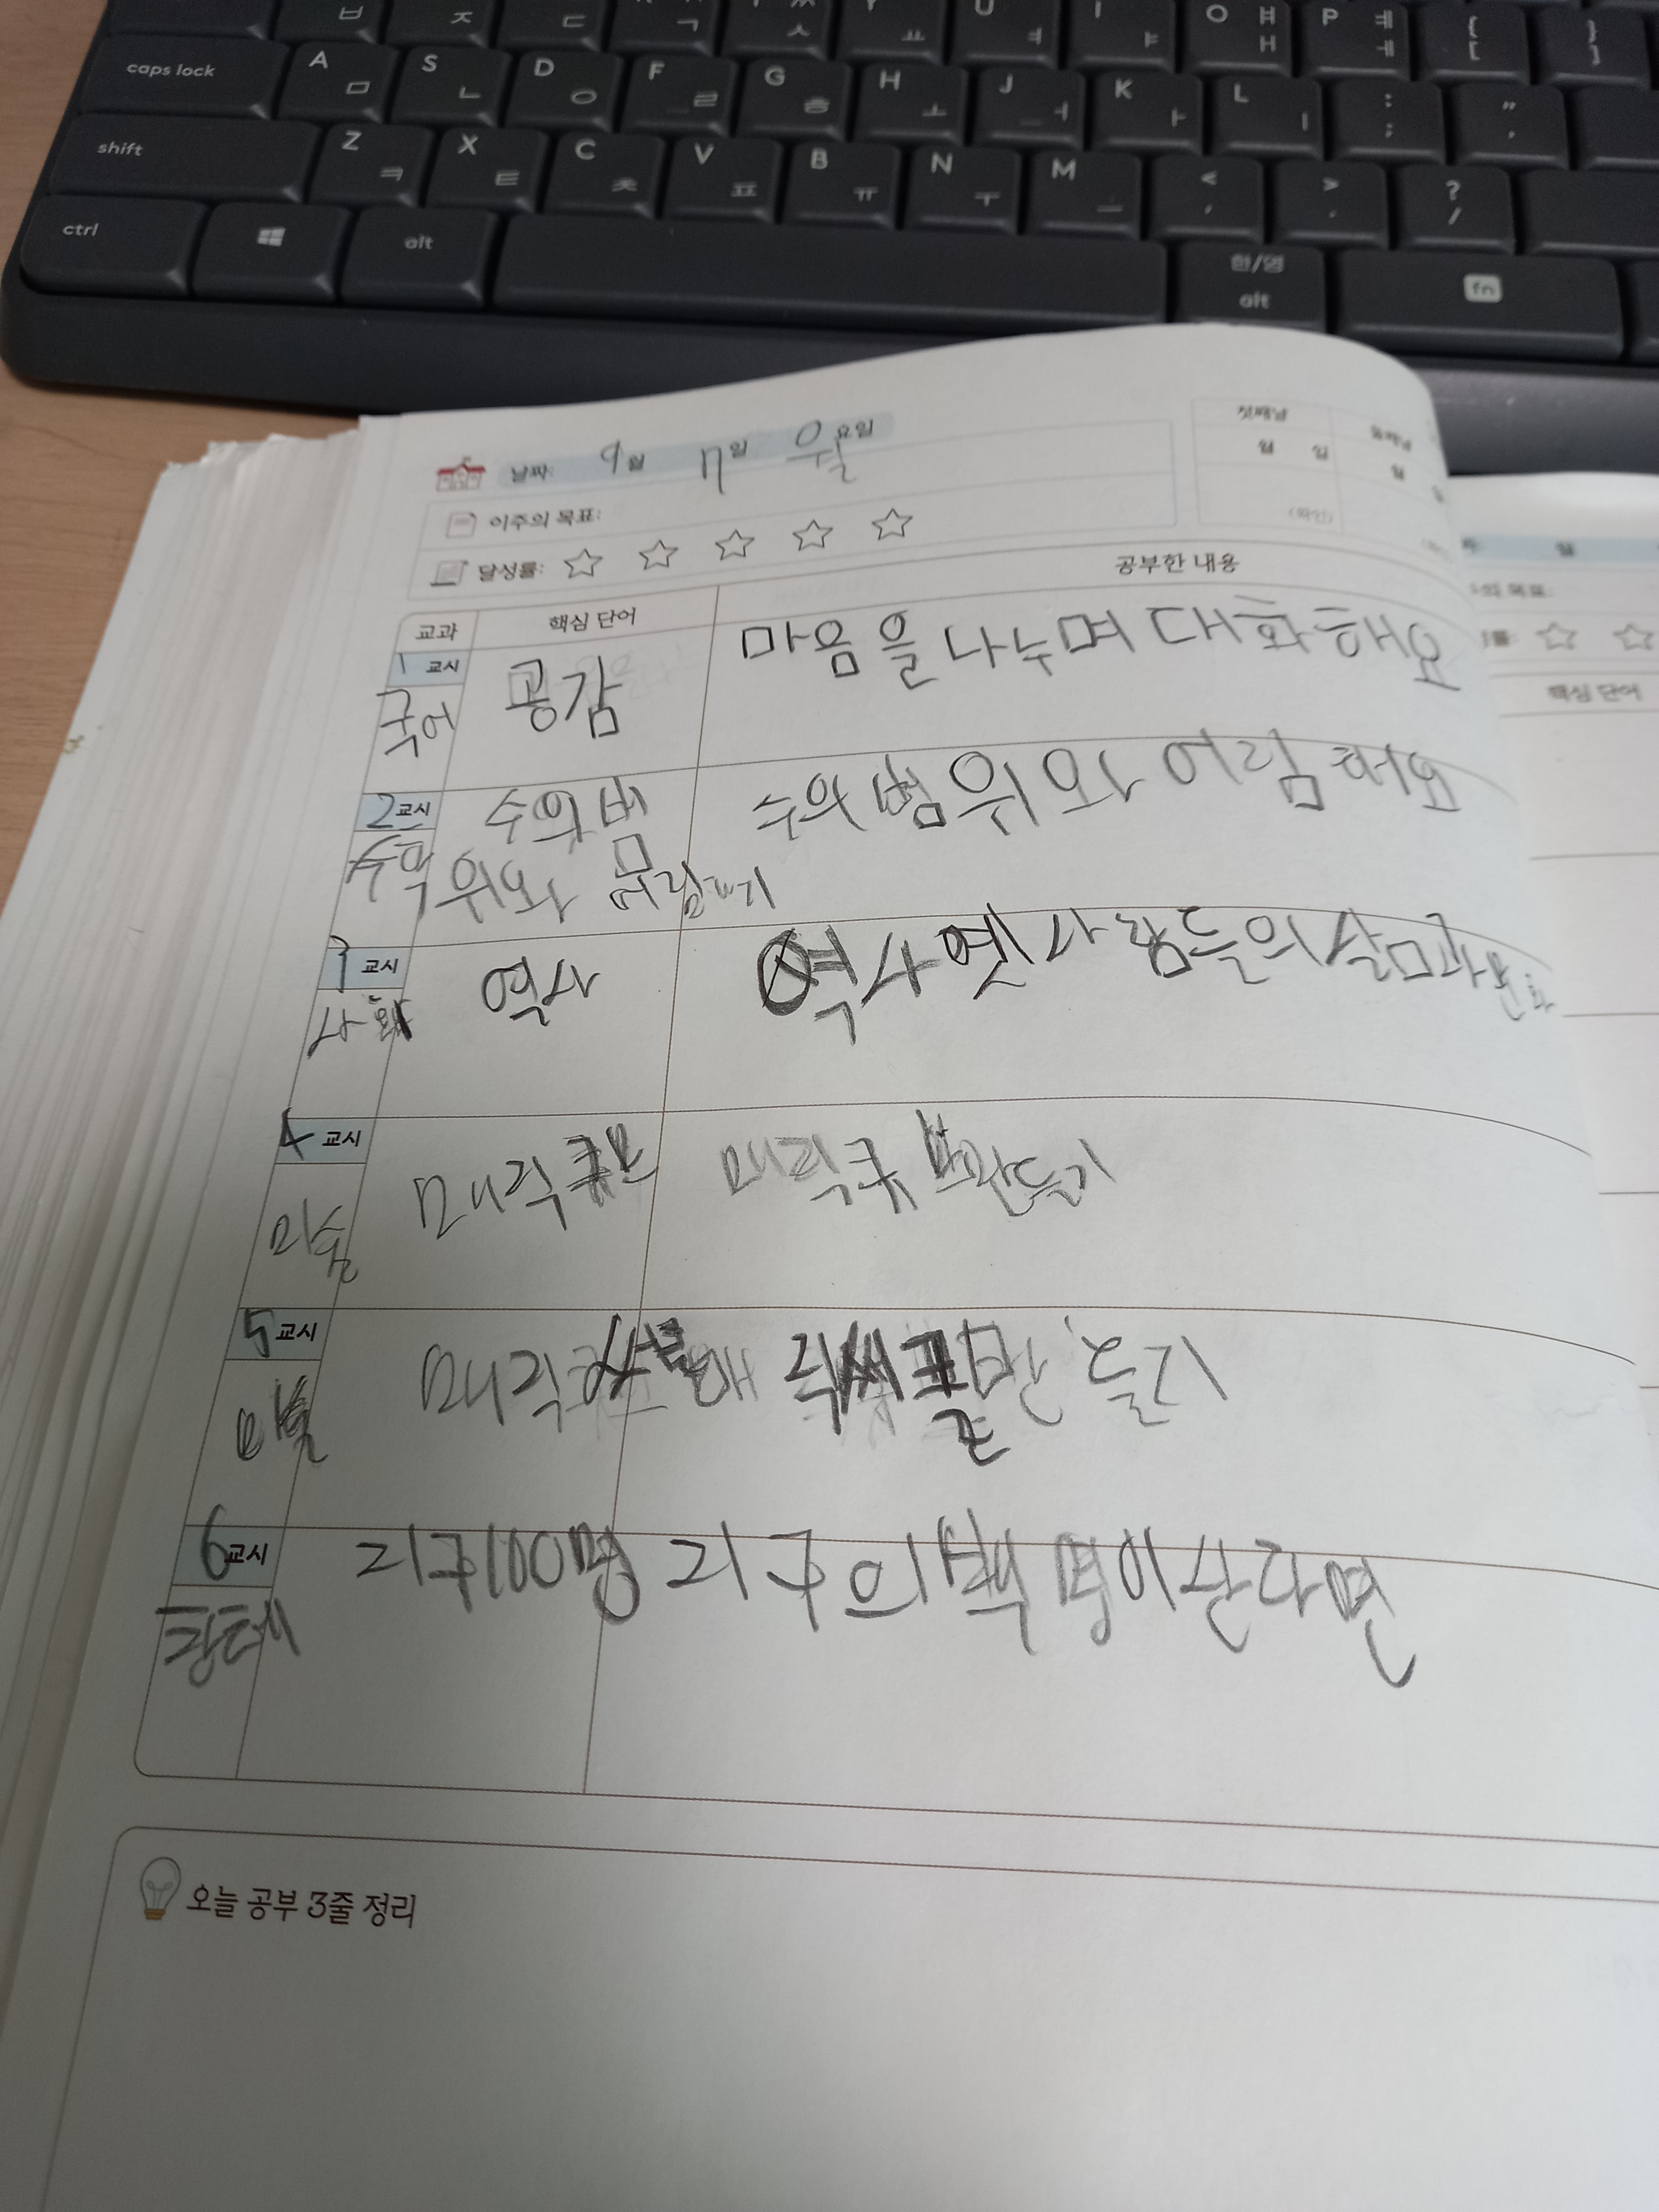 ㅂ ㅈ ㄷ ㄱ ㅅ ㅛ U ㅕ I ㅑ O ㅐ ㅒ P ㅔ ㅖ { [ } ]
caps lock A ㅁ S ㄴ D ㅇ F ㄹ G ㅎ H ㅗ J ㅓ K ㅏ L ㅣ : ; " '
shift Z ㅋ X ㅌ C ㅊ V ㅍ B ㅠ N ㅜ M ㅡ < , > . ? /
ctrl alt 한/영 alt fn
날짜: 9월 17일 월요일
첫째날 둘째날
월 일 월
이주의 목표:
(확인)
달성률:
교과 핵심 단어 공부한 내용
핵심 단어
1 교시 공감 마음을 나누며 대화해요
국어
2교시 수의 범 수의 범위와 어림
수학 위와 어림
3 교시 역사 역사 옛사람들의 삶과 문화
사회
4 교시 매직큐브 매직큐브만들기
미술
5 교시 매직 만들기
미술
6교시 지구100명 지구의 백명이 산다면
창체
오늘 공부 3줄 정리